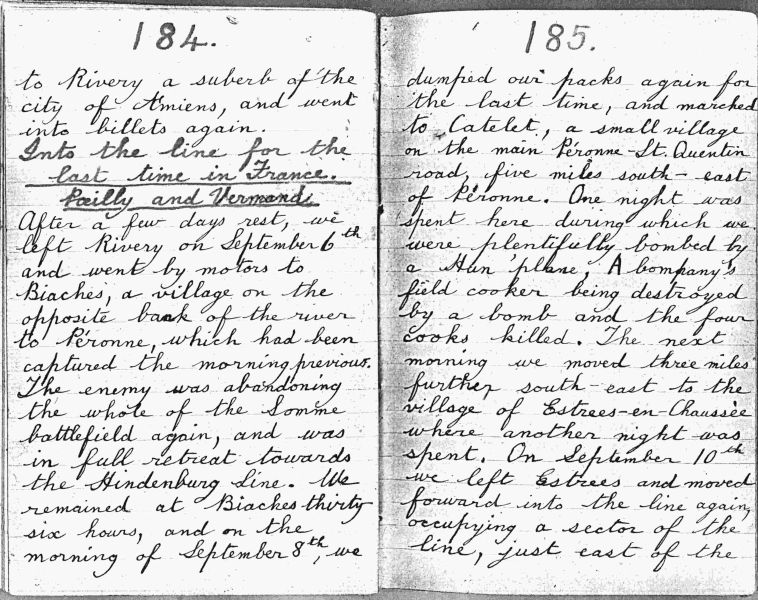 184.
to Rivery a suberb of the
city of Amiens, and went
into billets again.
Into the line for the
last time in France.
Pœilly and Vermand.
After a few days rest, we
left Rivery on September 6th
and went by motors to
Biaches, a village on the
opposite bank of the river
to Péronne, which had been
captured the morning previous.
The enemy was abandoning
the whole of the Somme
battlefield again, and was
in full retreat towards
the Hindenburg Line. We
remained at Biaches thirty
six hours, and on the
morning of September 8th, we
185.
dumped our packs again for
the last time, and marched
to Catelet, a small village
on the main Péronne-St. Quentin
road, five miles south-east
of Péronne. One night was
spent here during which we
were plentifully bombed by
a Hun 'plane, A bompany's
field cooker being destroyed
by a bomb and the four
cooks killed. The next
morning we moved three miles
further south-east to the
village of Estrees-en-Chaussèe
where another night was
spent. On September 10th
we left Estrees and moved
forward into the line again,
occupying a sector of the
line, just east of the